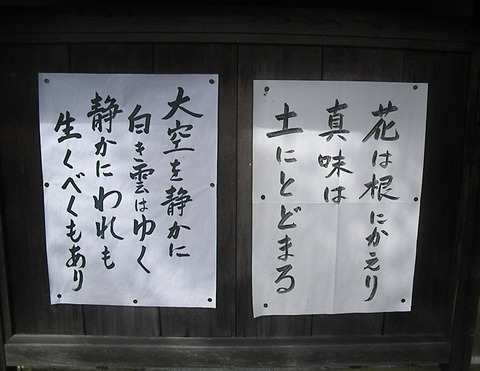 花は根にかえり
真味は
土にとどまる
大空を静かに
白き雲はゆく
静かにわれも
生くべくもあり